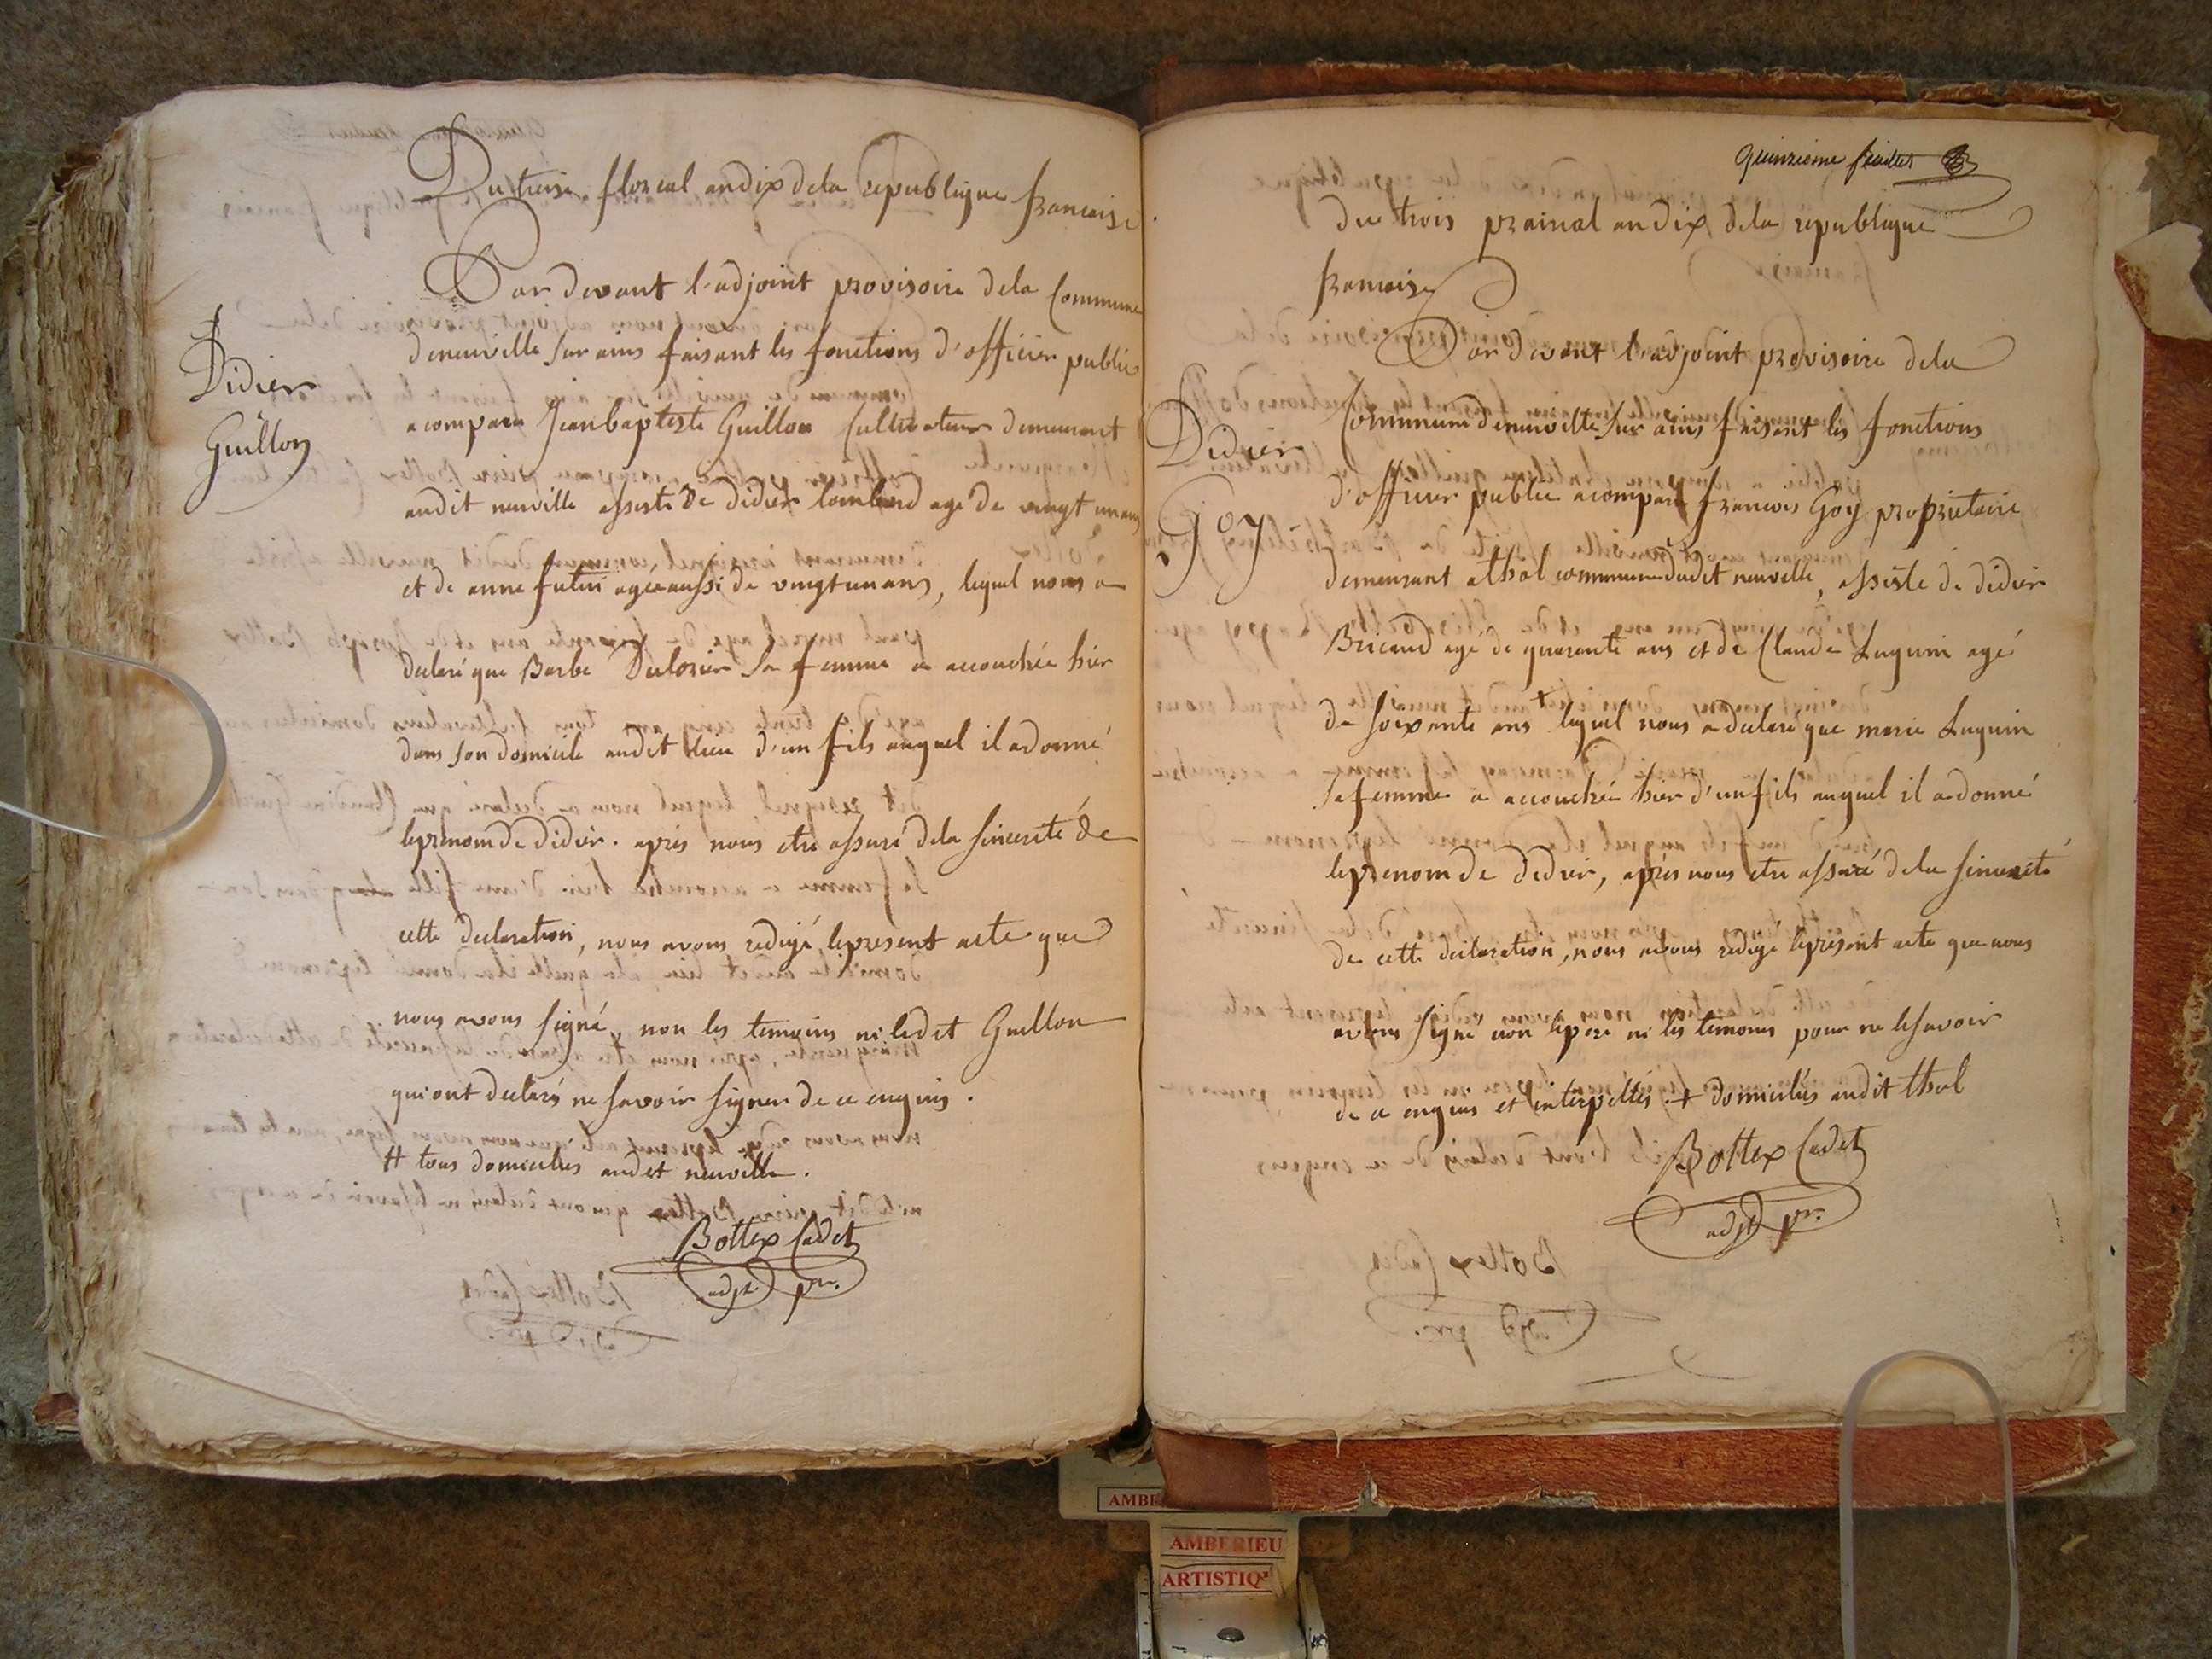 Du treise floreal an dix dela republique francaise
Par devant l'adjoint provisoire dela Commune
deneuville sur ains faisant les fonctions d'officier public
Didier
Guillon
a comparu Jean baptiste Guillon Cultivateur demeurant
audit neuville assisté de didier lombard agé de vingt un ans
et de anne futin agee aussi de vingt un ans, lequel nous a
declaré que Barbe Duclosier sa femme a accouchée hier
dans son domicile audit lieu d'un fils auquel il a donné
leprenom de didier. aprés nous etre assuré dela sincerité de
cette declaration, nous avons redigé lepresent acte que
nous avons signé, non les temoins ni ledit Guillon
qui ont declarés ne savoir signer de ce enquis.
# tous domiciliés audit neuville.
Bottex Cadet
adjt. pre.
quinzieme feuillet
du trois prairial an dix dela republique
francaise
Par devant l'adjoint provisoire dela
Commune deneuville sur ains faisant les fonctions
Didier
Goy
d'officier public a comparu francois Goy proprietaire
demeurant a thol commune dudit neuville, assisté de didier
Bricaud agé de quarante ans et de Claude Luguin agé
de soixante ans + lequel nous a declaré que marie Luguin
sa femme a accouchée hier d'un fils auquel il a donné
leprenom de didier, aprés nous etre assuré dela sincerité
de cette declaration, nous avons redigé lepresent acte que nous
avons signé non lepere ni les temoins pour ne lesavoir
de ce enquis et interpellés. + domiciliés audit thol
Bottex Cadet
adjt pr.
AMBERIEU
ARTISTIQ